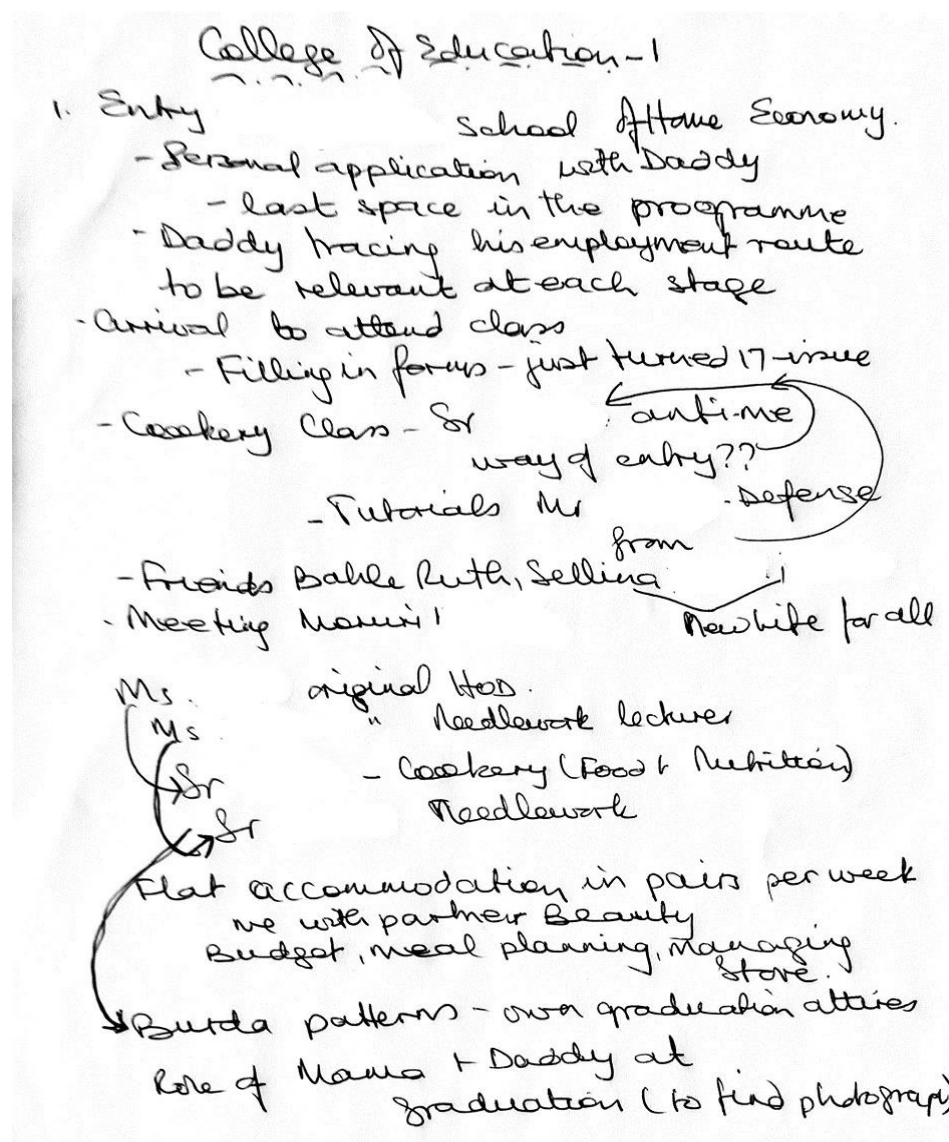 College of Education - 1
1. Entry
School of Home Economy.
- Personal application with Daddy
- last space in the programme
- Daddy tracing his employment route
to be relevant at each stage
- Arrival to attend class
- Filling in forms - just turned 17 - issue
- Cookery Class - Sr anti-me
way of entry??
- Tutorials Mr - Defense
from
- Friends Bahle Ruth, Sellina
- Meeting
New life for all
Ms. original HOD.
Ms. " Needlework lecturer
Sr - Cookery (Food + Nutrition)
Sr Needlework
Flat accommodation in pairs per week
me with partner Beauty
Budget, meal planning, managing
store.
Burda patterns - own graduation attires
Role of Mama + Daddy at
graduation (to find photograph)